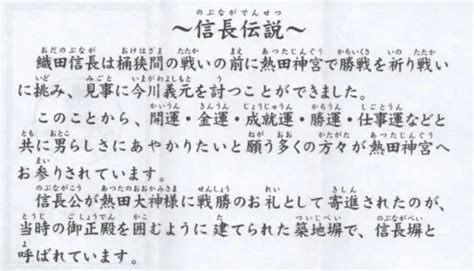 ～信長伝説～
織田信長は桶狭間の戦いの前に熱田神宮で勝戦を祈り戦い
に挑み、見事に今川義元を討つことができました。
このことから、開運・金運・成就運・勝運・仕事運などと
共に男らしさにあやかりたいと願う多くの方々が熱田神宮へ
お参りされています。
信長公が熱田大神様に戦勝のお礼として寄進されたのが、
当時の御正殿を囲むように建てられた築地塀で、信長塀と
呼ばれています。